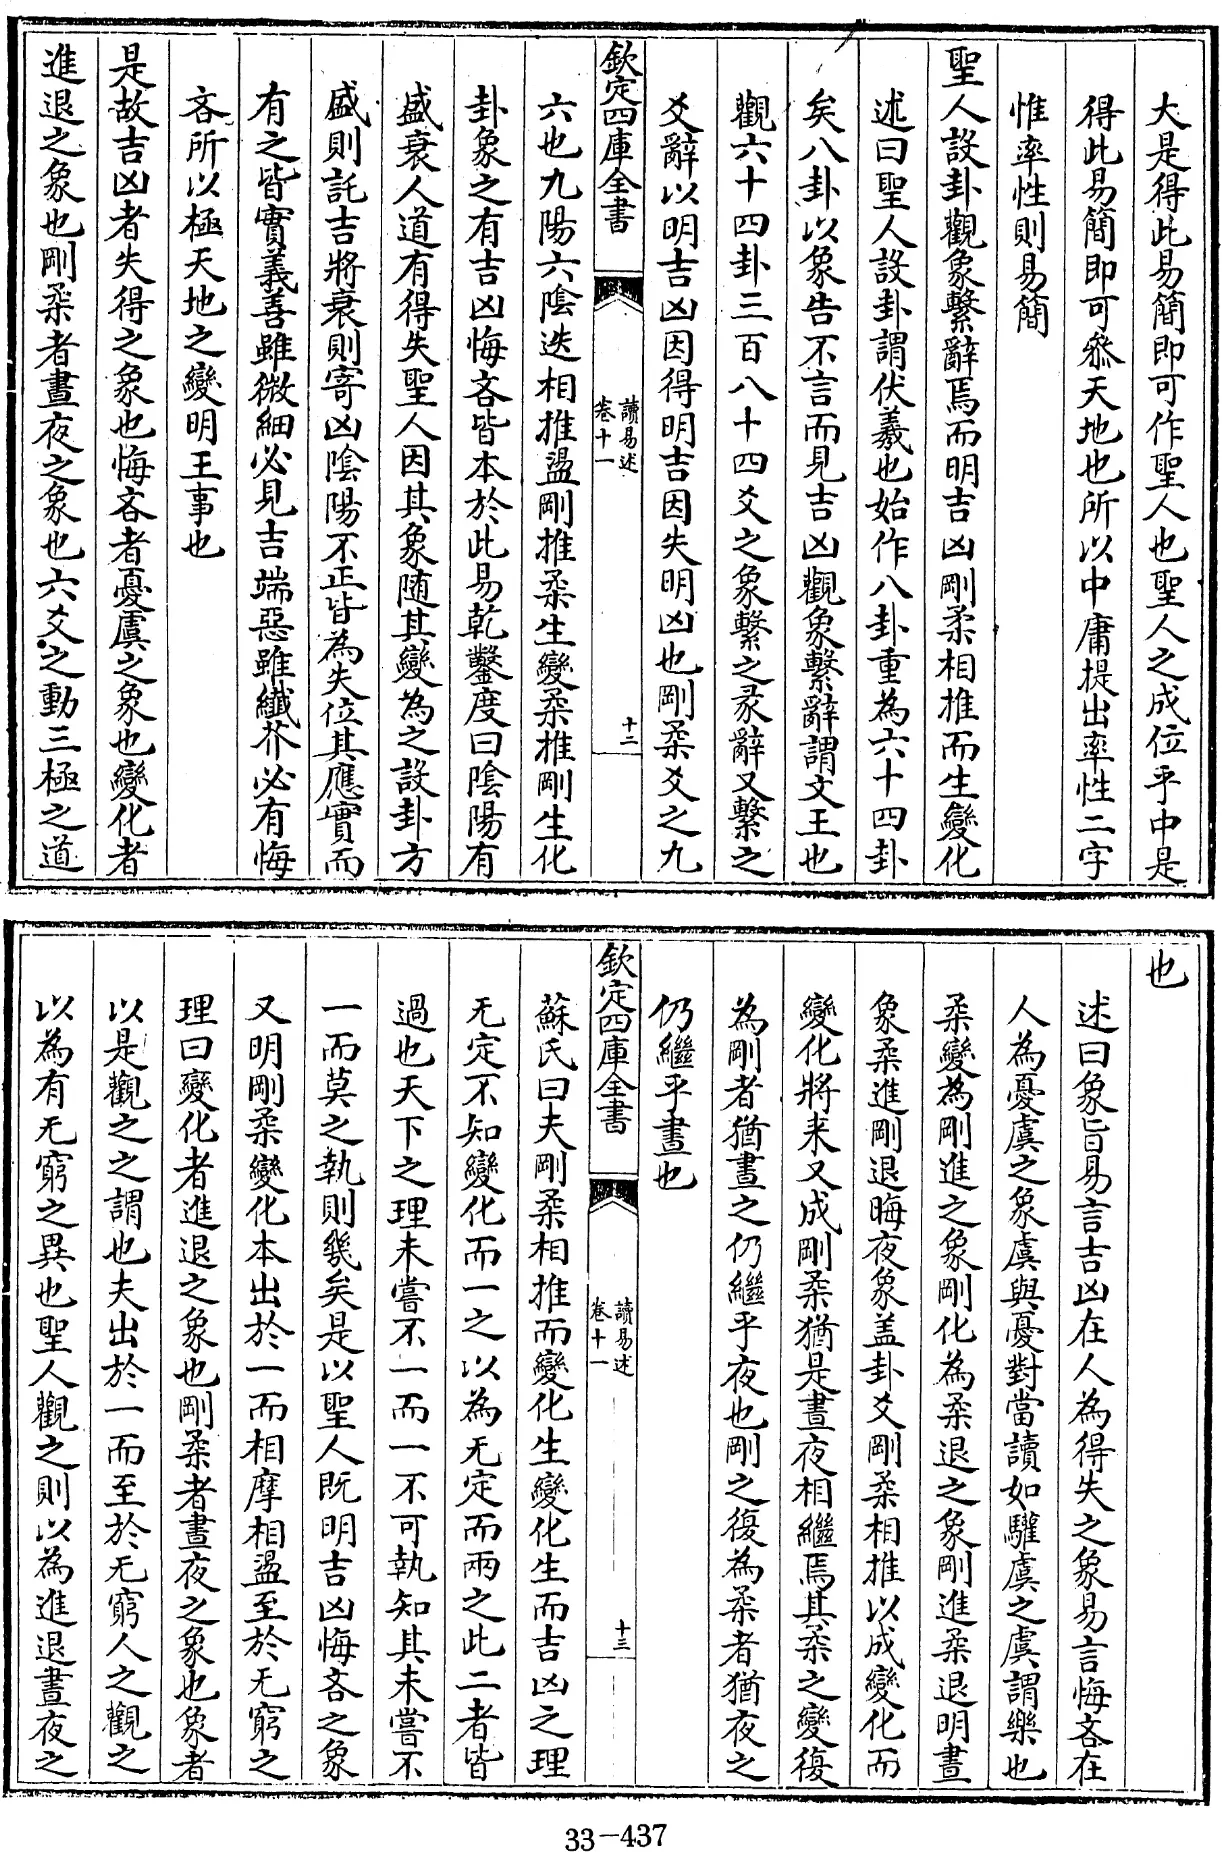 大是得此易簡即可作聖人也聖人之成位乎中是
得此易簡即可叅天地也所以中庸提出率性二字
惟率性則易簡
聖人設卦觀象繫辭焉而明吉凶剛柔相推而生變化
述曰聖人設卦謂伏羲也始作八卦重為六十四卦
矣八卦以象告不言而見吉凶觀象繫辭謂文王也
觀六十四卦三百八十四爻之象繫之彖辭又繫之
爻辭以明吉凶因得明吉因失明凶也剛柔爻之九
欽定四庫全書
讀易述
卷十一
十二
六也九陽六陰迭相推盪剛推柔生變柔推剛生化
卦象之有吉凶悔吝皆本於此易乾鑿度曰陰陽有
盛衰人道有得失聖人因其象随其變為之設卦方
盛則託吉將衰則寄凶陰陽不正皆為失位其應實而
有之皆實義善雖微細必見吉端惡雖纖芥必有悔
吝所以極天地之變明王事也
是故吉凶者失得之象也悔吝者憂虞之象也變化者
進退之象也剛柔者晝夜之象也六爻之動三極之道
也
述曰象旨易言吉凶在人為得失之象易言悔吝在
人為憂虞之象虞與憂對當讀如騶虞之虞謂樂也
柔變為剛進之象剛化為柔退之象剛進柔退明晝
象柔進剛退晦夜象盖卦爻剛柔相推以成變化而
變化將来又成剛柔猶是晝夜相繼焉其柔之變復
為剛者猶晝之仍繼乎夜也剛之復為柔者猶夜之
仍繼乎晝也
欽定四庫全書
讀易述
卷十一
十三
蘇氏曰夫剛柔相推而變化生變化生而吉凶之理
无定不知變化而一之以為无定而兩之此二者皆
過也天下之理未嘗不一而一不可執知其未嘗不
一而莫之執則幾矣是以聖人既明吉凶悔吝之象
又明剛柔變化本出於一而相摩相盪至於无窮之
理曰變化者進退之象也剛柔者晝夜之象也象者
以是觀之之謂也夫出於一而至於无窮人之觀之
以為有无窮之異也聖人觀之則以為進退晝夜之
33-437